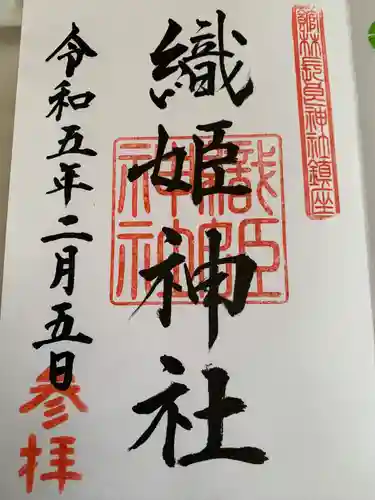 館林長良神社鎮座
織姫神社
織姫
神社
令和五年二月五日
参拝